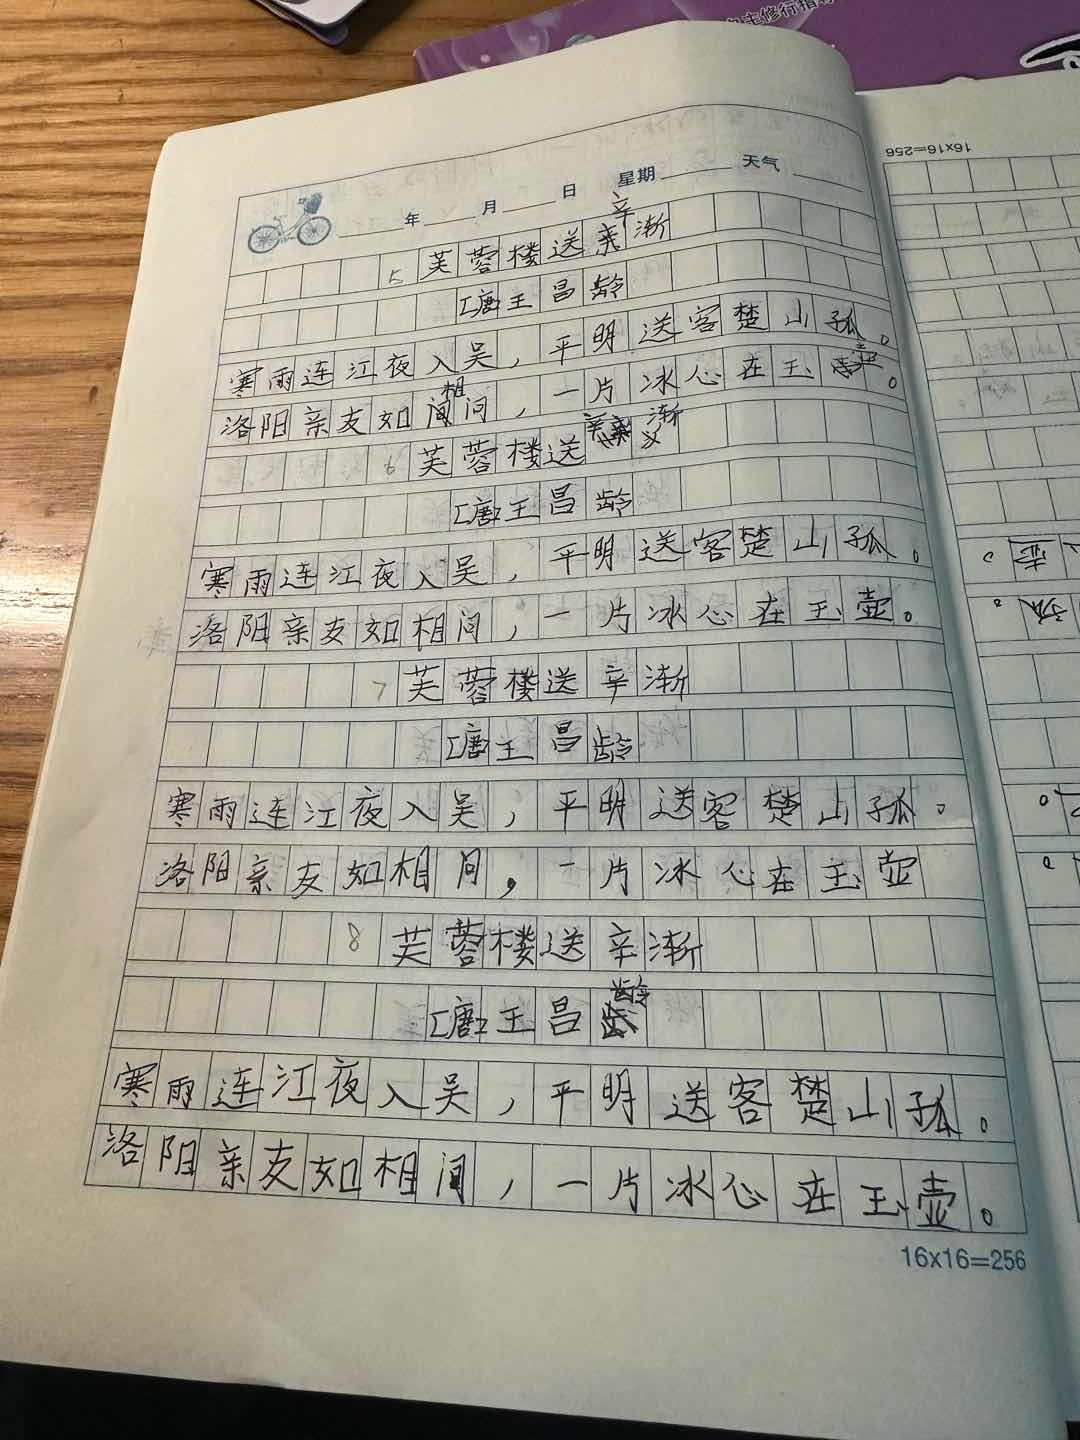 自主修行指
16x16=256
年 月 日 星期 天气
5 芙蓉楼送辛渐
[唐]王昌龄
寒雨连江夜入吴，平明送客楚山孤。
洛阳亲友如相问，一片冰心在玉壶。
6 芙蓉楼送辛渐
[唐]王昌龄
寒雨连江夜入吴，平明送客楚山孤。
洛阳亲友如相问，一片冰心在玉壶。
7 芙蓉楼送辛渐
[唐]王昌龄
寒雨连江夜入吴，平明送客楚山孤。
洛阳亲友如相问，一片冰心在玉壶
8 芙蓉楼送辛渐
[唐]王昌龄
寒雨连江夜入吴，平明送客楚山孤。
洛阳亲友如相间，一片冰心在玉壶。
16x16=256
壶。
孤。